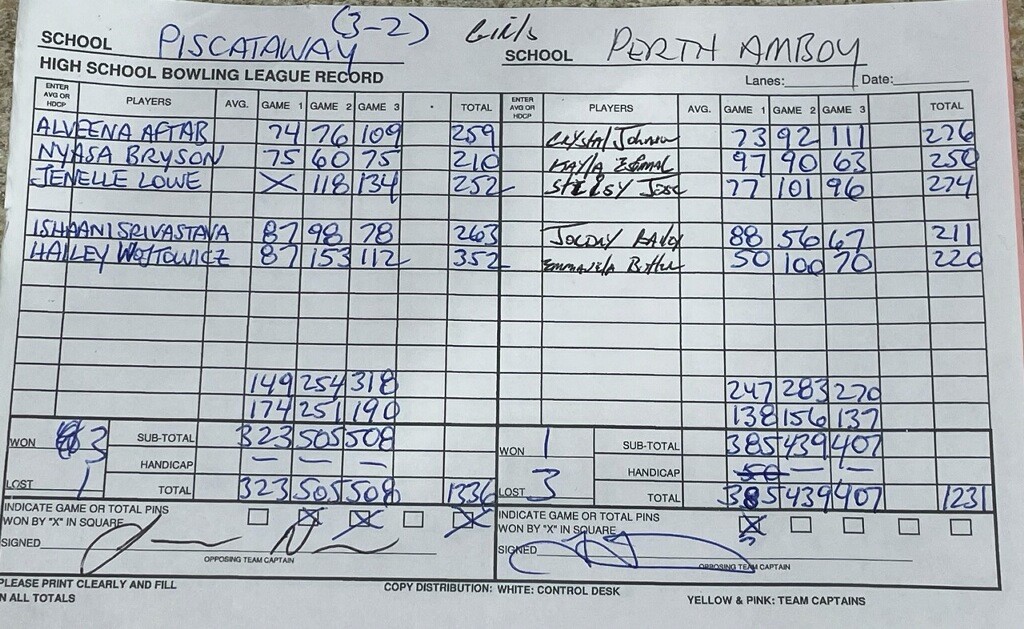 (3-2) Girls
SCHOOL PISCATAWAY SCHOOL PERTH AMBOY
HIGH SCHOOL BOWLING LEAGUE RECORD Lanes: Date:
ENTER AVG OR HDCP PLAYERS AVG. GAME 1 GAME 2 GAME 3 TOTAL ENTER AVG OR HDCP PLAYERS AVG. GAME 1 GAME 2 GAME 3 TOTAL
ALVEENA AFTAB 74 76 109 259 Crystal Johnson 73 92 111 276
NYASA BRYSON 75 60 75 210 KAYLA 97 90 63 250
JENELLE LOWE X 118 134 252 SHELSY JOSE 77 101 96 274
ISHAANI SRIVASTAVA 87 98 78 263 88 56 67 211
HAILEY WOJTOWICZ 87 153 112 352 50 100 70 220
149 254 318 247 283 270
174 251 190 138 156 137
WON 3 SUB-TOTAL 323 505 508 WON 1 SUB-TOTAL 385 439 407
HANDICAP — — HANDICAP 50 — —
LOST 1 TOTAL 323 505 508 1336 LOST 3 TOTAL 385 439 407 1231
INDICATE GAME OR TOTAL PINS WON BY "X" IN SQUARE X X X INDICATE GAME OR TOTAL PINS WON BY "X" IN SQUARE X
SIGNED SIGNED
OPPOSING TEAM CAPTAIN OPPOSING TEAM CAPTAIN
PLEASE PRINT CLEARLY AND FILL COPY DISTRIBUTION: WHITE: CONTROL DESK
N ALL TOTALS YELLOW & PINK: TEAM CAPTAINS